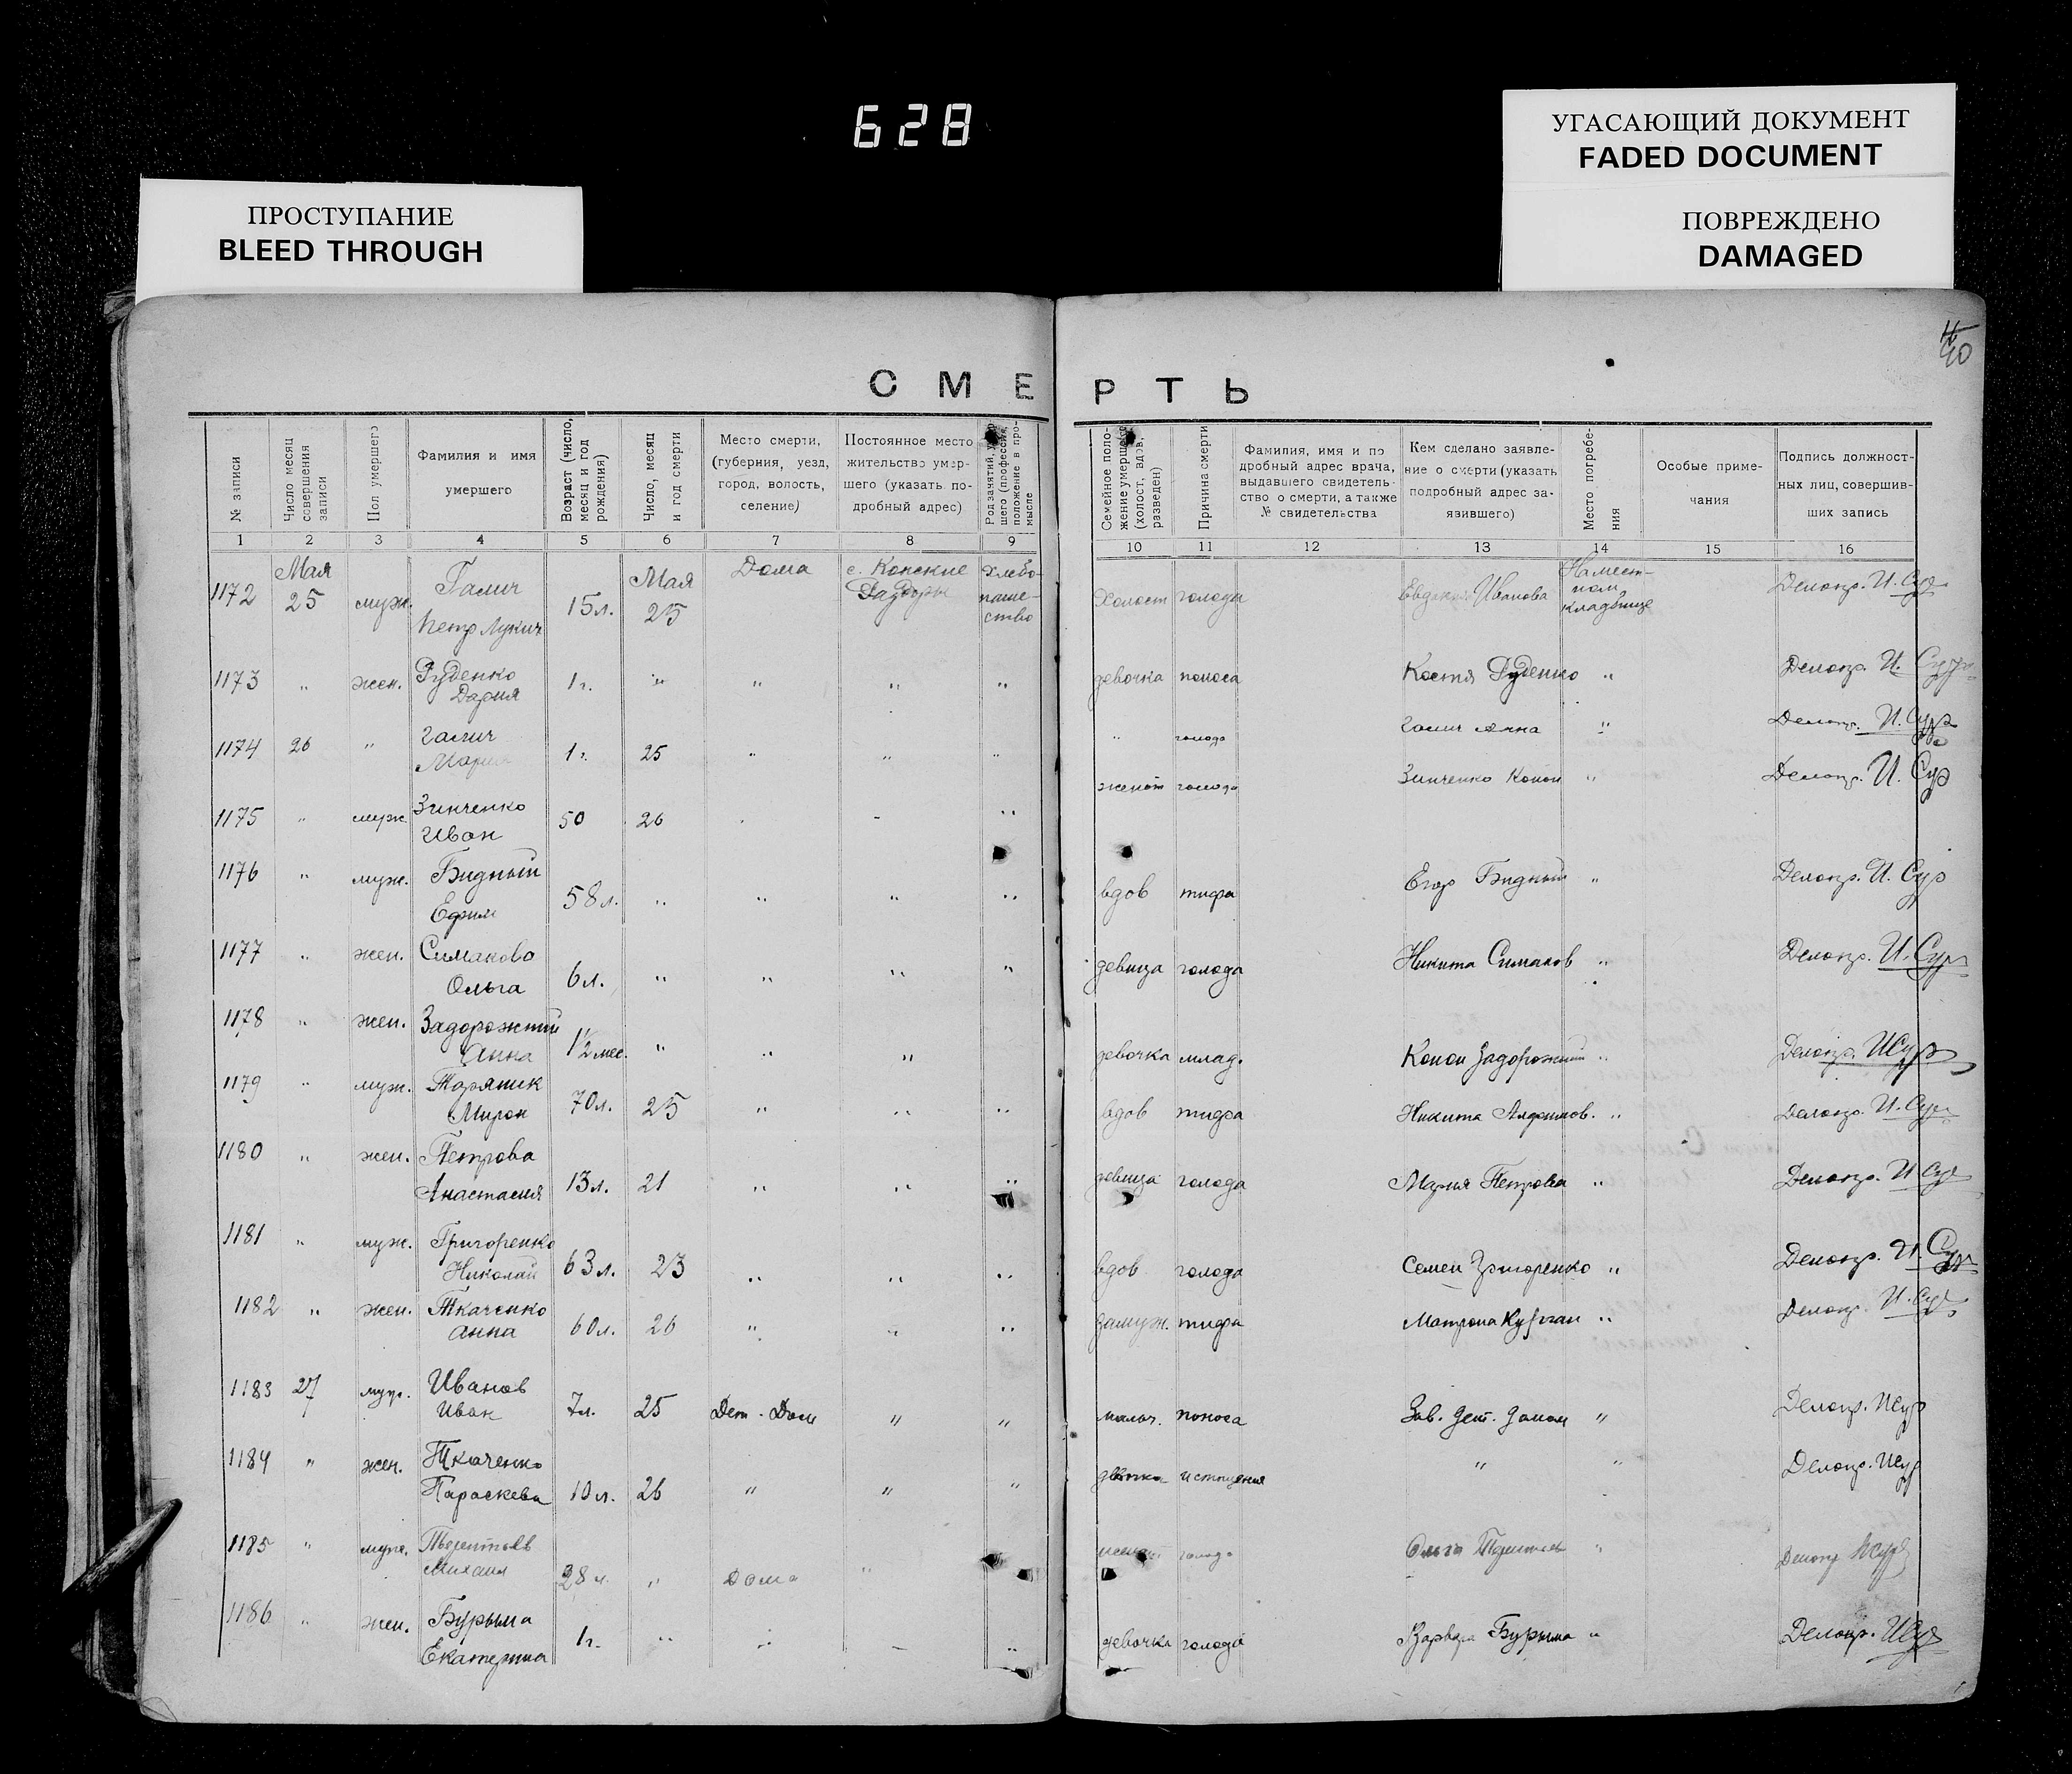 628
УГАСАЮЩИЙ ДОКУМЕНТ
FADED DOCUMENT
ПОВРЕЖДЕНО
DAMAGED
ПРОСТУПАНИЕ
BLEED THROUGH
40
СМЕРТЬ
№ записи
Число месяц совершения записи
Пол умершего
Фамилия и имя умершего
Возраст (число, месяц и год рождения)
Число, месяц и год смерти
Место смерти, (губерния, уезд, город, волость, селение)
Постоянное место жительство умершего (указать подробный адрес)
Род занятий, умершего (профессия, положение в промысле
Семейное положение умершего (холост, вдов, разведен)
Причина смерти
Фамилия, имя и подробный адрес врача, выдавшего свидетельство о смерти, а также № свидетельства
Кем сделано заявление о смерти (указать подробный адрес заявившего)
Место погребения
Особые примечания
Подпись должностных лиц, совершивших запись
1 2 3 4 5 6 7 8 9 10 11 12 13 14 15 16
1172 Мая 25 муж. Галич Петр Лукич 15 л. Мая 25 Дома с. Конские Раздоры Хлебопашество Холост голода Евдокия Иванова На местном кладбище Делопр. И. Сур
1173 " жен. Руденко Дария 1 г. " " " " девочка поноса Костя Руденко " Делопр. И.
1174 26 " Галич Мария 1 г. 25 " " " " голода Галич Анна " Делопр. И. Сур
1175 " муж Зинченко Иван 50 26 " женат голода Зинченко Конон " Делопр. И. Сур
1176 " муж. Бидный Ефим 58 л. " " " " вдов тифа Егор Бидный " Делопр. И. Сур
1177 " жен. Симакова Ольга 6 л. " " " " девица голода Никита Симаков " Делопр. И. Сур
1178 " жен. Задорожний Анна 1½ мес. " " " девочка млад. Конон Задорожний " Делопр. И Сур
1179 " муж. Таряник Мирон 70 л. 25 " " " вдов тифа Никита " Делопр. И. Сур
1180 " жен. Петрова Анастасия 13 л. 21 " " " девица голода Мария Петрова " Делопр. И Сур
1181 " муж. Григоренко Николай 63 л. 23 " " " вдов голода Семен Григоренко " Делопр. И. Сур
1182 " жен. Ткаченко Анна 60 л. 26 " " " замуж. тифа Матрона Курган " Делопр. И. Сур
1183 27 муж. Иванов Иван 7 л. 25 Дет. Дом " " мальч. поноса Зав. дет. домом " Делопр. И Сур
1184 " жен. Ткаченко Параскева 10 л. 26 " " " девочка истощения " " Делопр. И Сур
1185 " муж. Михаил 28 л. " Дома " женат голода Ольга " Делопр И Сур
1186 " жен. Бурыма Екатерина 1 г. " " " девочка голода Варвара Бурыма " Делопр. И Сур